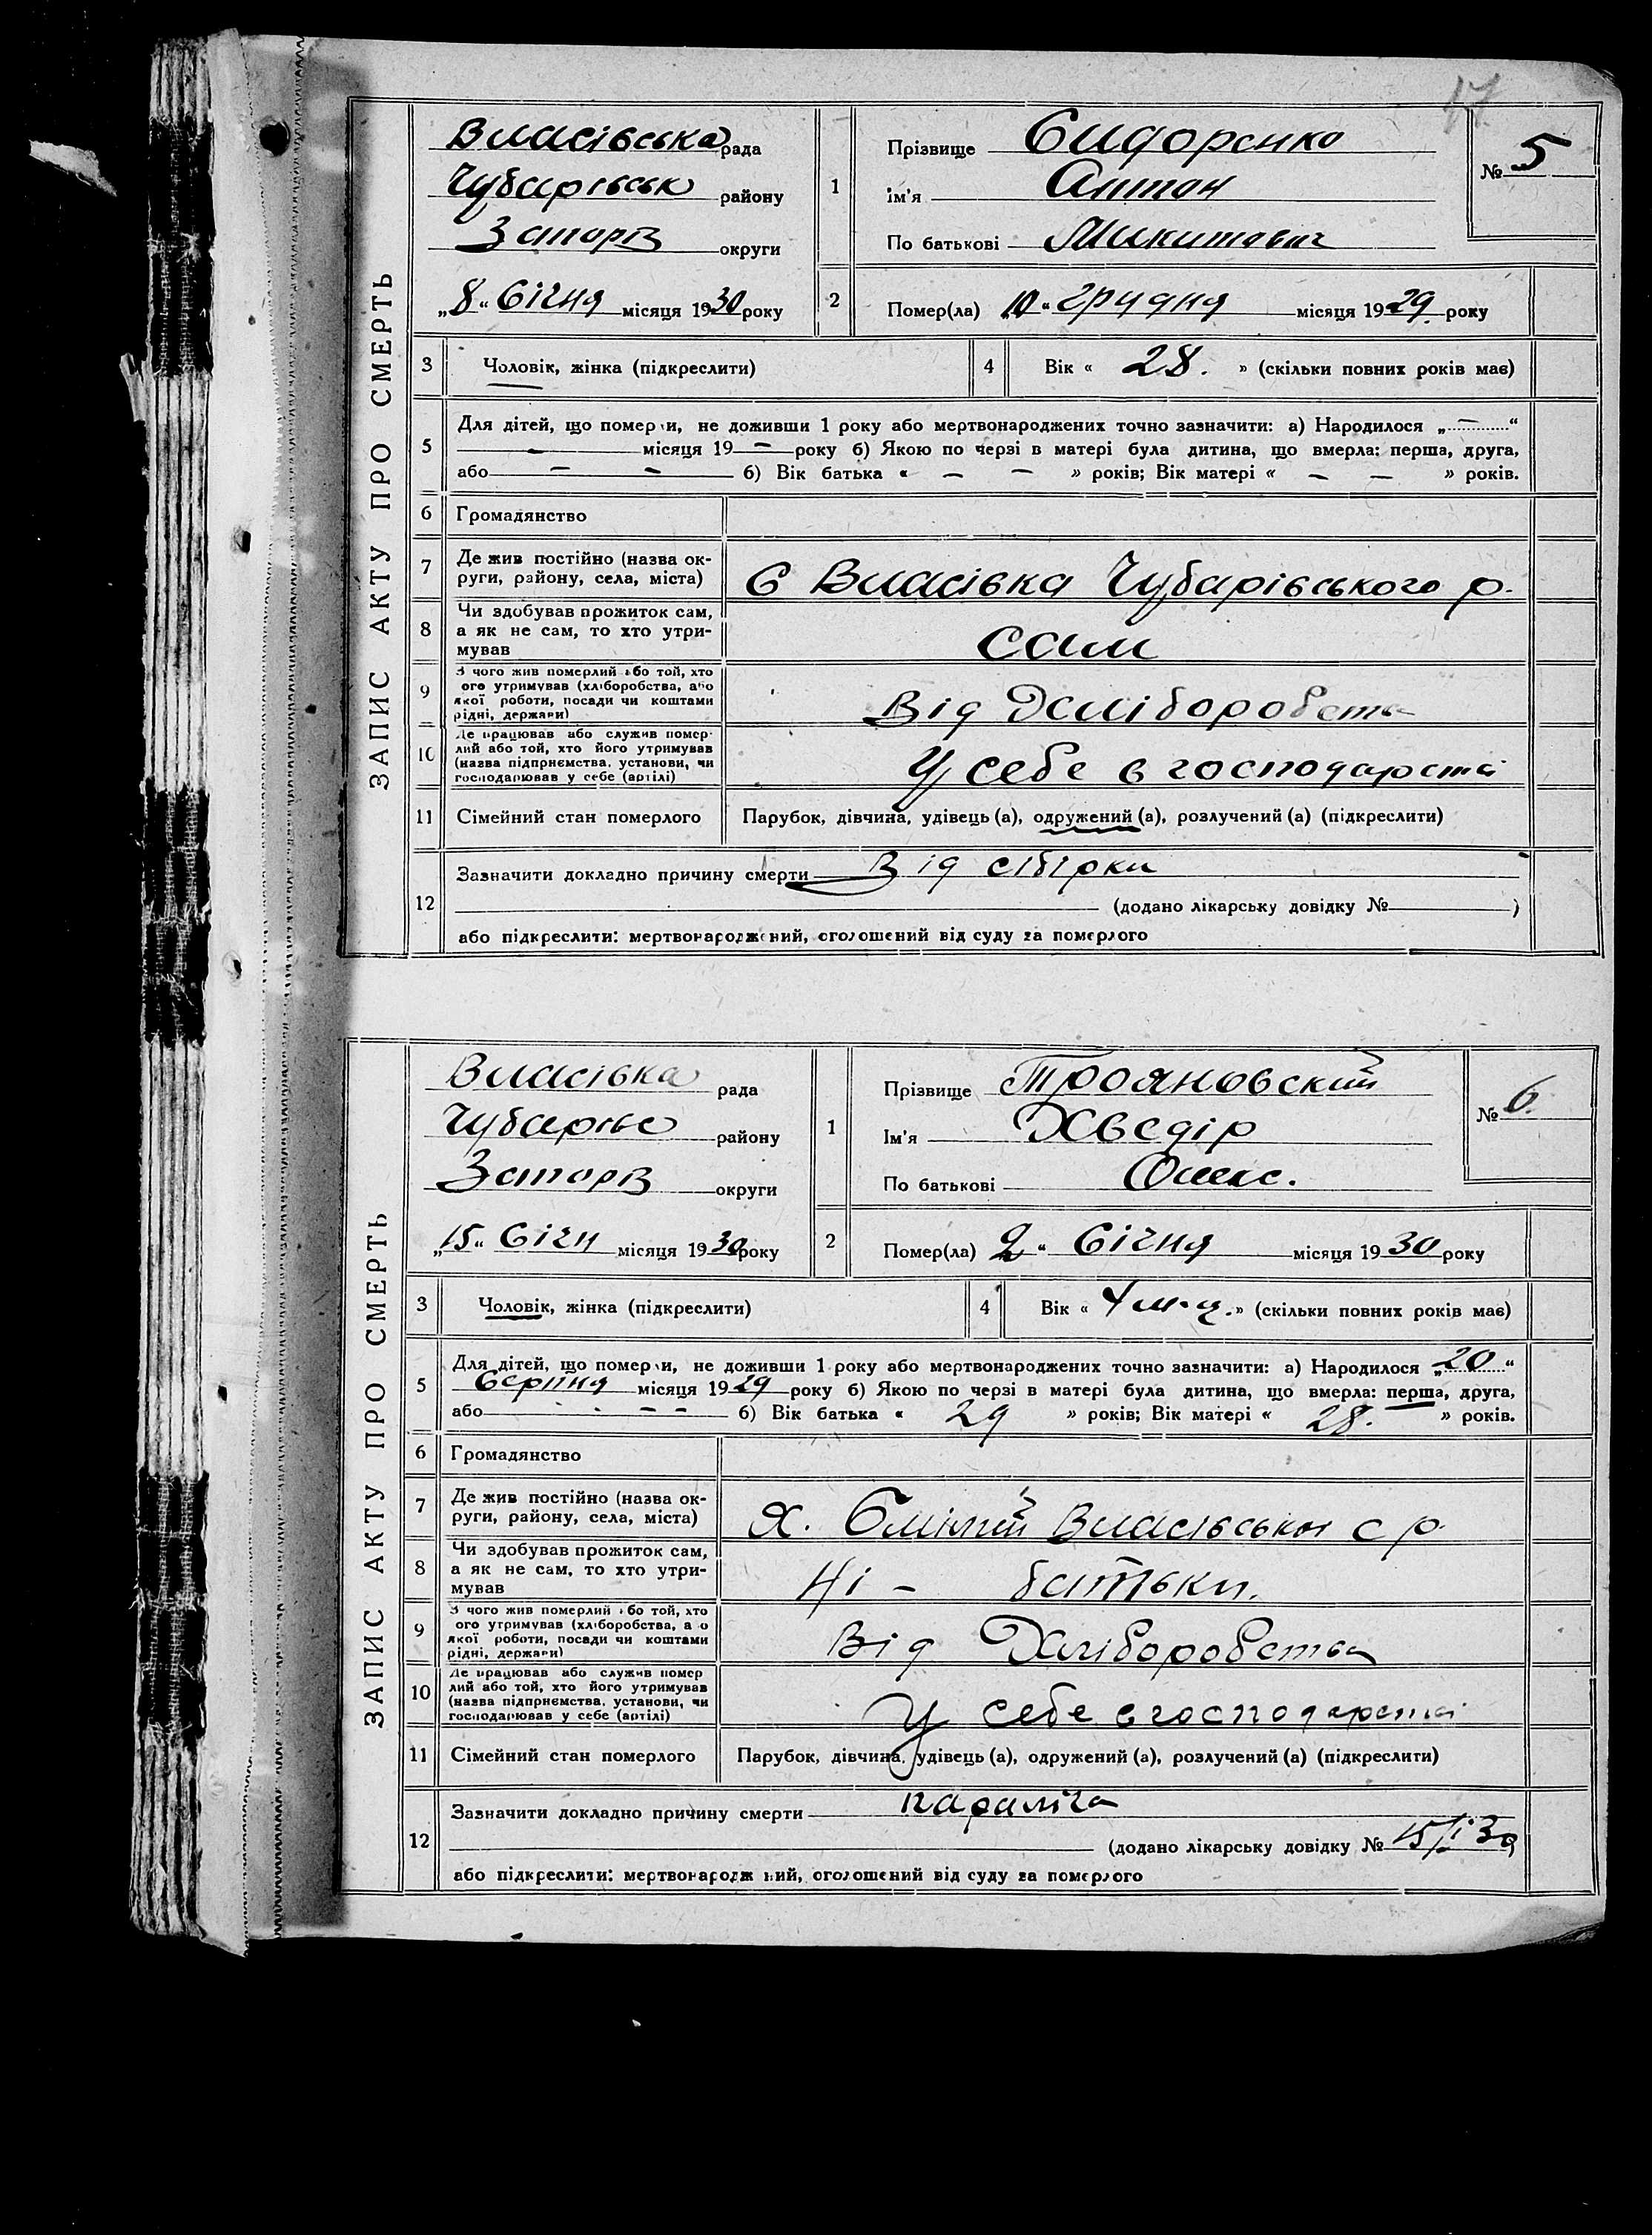 17
ЗАПИС АКТУ ПРО СМЕРТЬ
Власівська рада
Чубарівськ району
Запоріз округи
„8“ Січня місяця 1930 року
1
Прізвище Сидоренко
ім'я Антон
По батькові Микитович
№ 5
2
Помер(ла) „10“ грудня місяця 1929 року
3 Чоловік, жінка (підкреслити)
4 Вік « 28. » (скільки повних років має)
5 Для дітей, що померли, не доживши 1 року або мертвонароджених точно зазначити: а) Народилося „ — “
— місяця 19 — року б) Якою по черзі в матері була дитина, що вмерла: перша, друга,
або — — б) Вік батька « — — » років; Вік матері « — — » років.
6 Громадянство
7 Де жив постійно (назва округи, району, села, міста)
С Власівка Чубарівського р.
8 Чи здобував прожиток сам,
а як не сам, то хто утримував
сам
9 З чого жив померлий або той, хто
ого утримував (хліборобства, або
якої роботи, посади чи коштами
рідні, держави)
Від Хліборобства
10 Де працював або служив померлий або той, хто його утримував
(назва підприємства, установи, чи
господарював у себе (артілі)
У себе в господарстві
11 Сімейний стан померлого
Парубок, дівчина, удівець (а), одружений (а), розлучений (а) (підкреслити)
12 Зазначити докладно причину смерти Від сібірки
(додано лікарську довідку № )
або підкреслити: мертвонароджений, оголошений від суду за померлого
ЗАПИС АКТУ ПРО СМЕРТЬ
Власівка рада
Чубарівс району
Запоріз округи
„15“ Січн місяця 1930 року
1
Прізвище Трояновский
Ім'я Хведір
По батькові Олекс.
№ 6.
2
Помер(ла) 2 “ Січня місяця 1930 року
3 Чоловік, жінка (підкреслити)
4 Вік « 4 м-ц. » (скільки повних років має)
5 Для дітей, що померли, не доживши 1 року або мертвонароджених точно зазначити: а) Народилося „20“
Серпня місяця 1929 року б) Якою по черзі в матері була дитина, що вмерла: перша, друга,
або — — б) Вік батька « 29 » років; Вік матері « 28. » років.
6 Громадянство
7 Де жив постійно (назва округи, району, села, міста)
Х. Власівської с р.
8 Чи здобував прожиток сам,
а як не сам, то хто утримував
Ні – батьки.
9 З чого жив померлий або той, хто
ого утримував (хліборобства, або
якої роботи, посади чи коштами
рідні, держави)
Від Хліборобства
10 Де працював або служив помер
лий або той, хто його утримував
(назва підприємства, установи, чи
господарював у себе (артілі)
У себе в господарстві
11 Сімейний стан померлого
Парубок, дівчина, удівець (а), одружений (а), розлучений (а) (підкреслити)
12 Зазначити докладно причину смерти параліча
(додано лікарську довідку № 15/I 30)
або підкреслити: мертвонародж ний, оголошений від суду за померлого